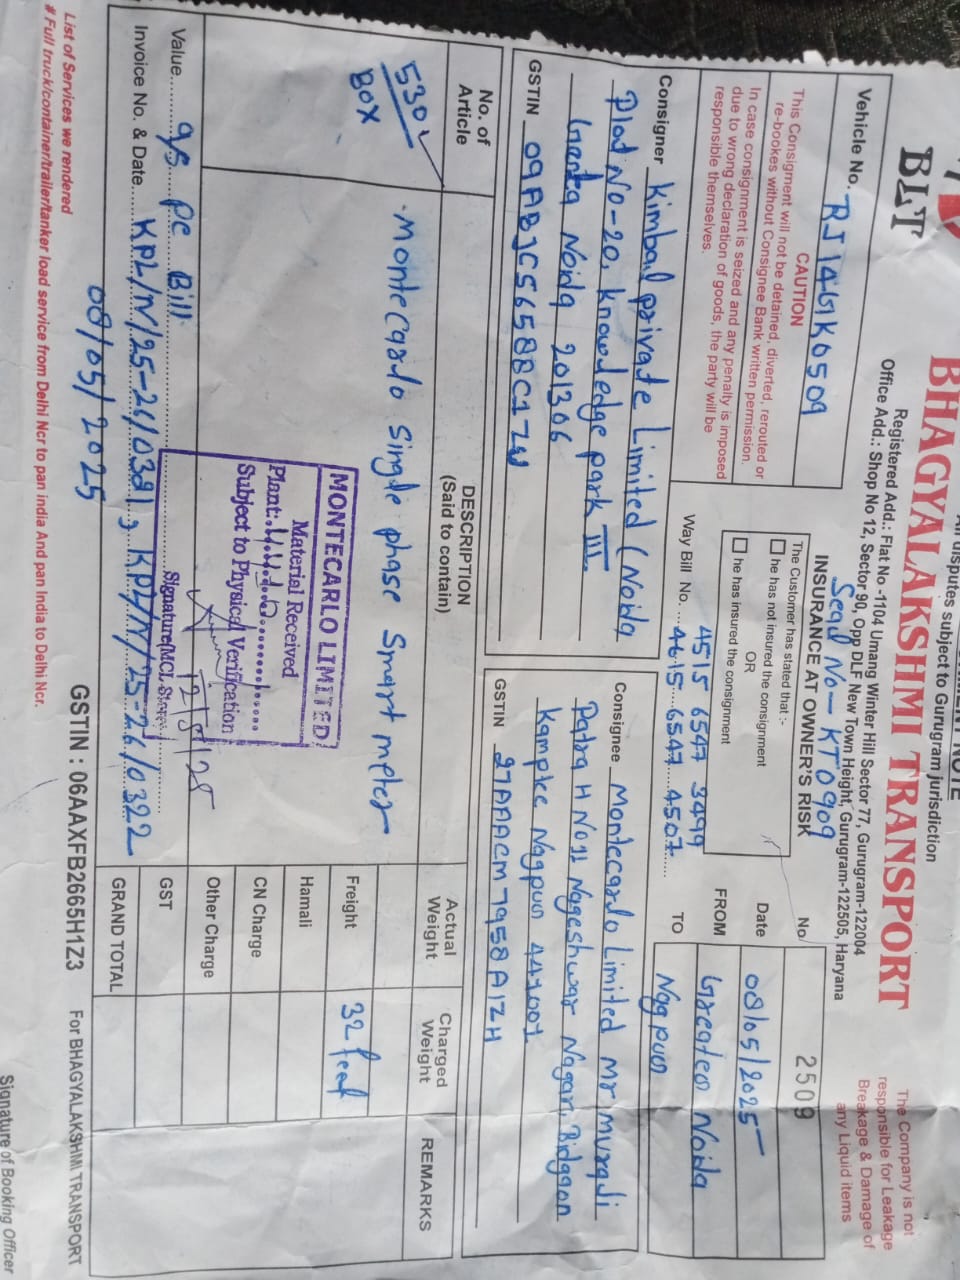 All disputes subject to Gurugram jurisdiction
BLT
BHAGYALAKSHMI TRANSPORT
Registered Add.: Flat No -1104 Umang Winter Hill Sector 77, Gurugram-122004
Office Add.: Shop No 12, Sector 90, Opp DLF New Town Height, Gurugram-122505, Haryana
The Company is not
responsible for Leakage
Breakage & Damage of
any Liquid items
Vehicle No. RJ14GK0509
Seal No- KT0909
CAUTION
This Consigment will not be detained, diverted, rerouted or
re-bookes without Consignee Bank written permission.
In case consignment is seized and any penalty is imposed
due to wrong declaration of goods, the party will be
responsible themselves.
INSURANCE AT OWNER'S RISK
The Customer has stated that :-
he has not insured the consigment
OR
he has insured the consignment
Way Bill No. ... 4515 6547 3499
4615 6547 4507
No 2509
Date 08/05/2025
FROM Greater Noida
TO Nagpur
Consigner Kimbal private Limited (Noida
Plot No-20, knowledge park III
Noida 201306
GSTIN 09ABJCS6658BC1ZW
Consignee Montecarlo Limited Mr murali
Patra H No 11 Nageshwar Nagari Bidgaon
Kamptee Nagpur 441001
GSTIN 27AAACM7958A1ZH
No. of
Article
DESCRIPTION
(Said to contain)
Actual
Weight
Charged
Weight
REMARKS
530
BOX
montecarlo single phase Smart meter
MONTECARLO LIMITED
Material Received
Plant:
Subject to Physical Verification
Signature(MCL Store)
12/5/25
Freight 32 feet
Hamali
CN Charge
Other Charge
GST
GRAND TOTAL
Value as pe Bill
Invoice No. & Date KPL/N/25-26/0381, KPL/N/25-26/0322
08/05/2025
List of Services we rendered
# Full truck/container/trailer/tanker load service from Delhi Ncr to pan india And pan India to Delhi Ncr.
GSTIN : 06AAXFB2665H1Z3
For BHAGYALAKSHMI TRANSPORT
Signature of Booking Officer